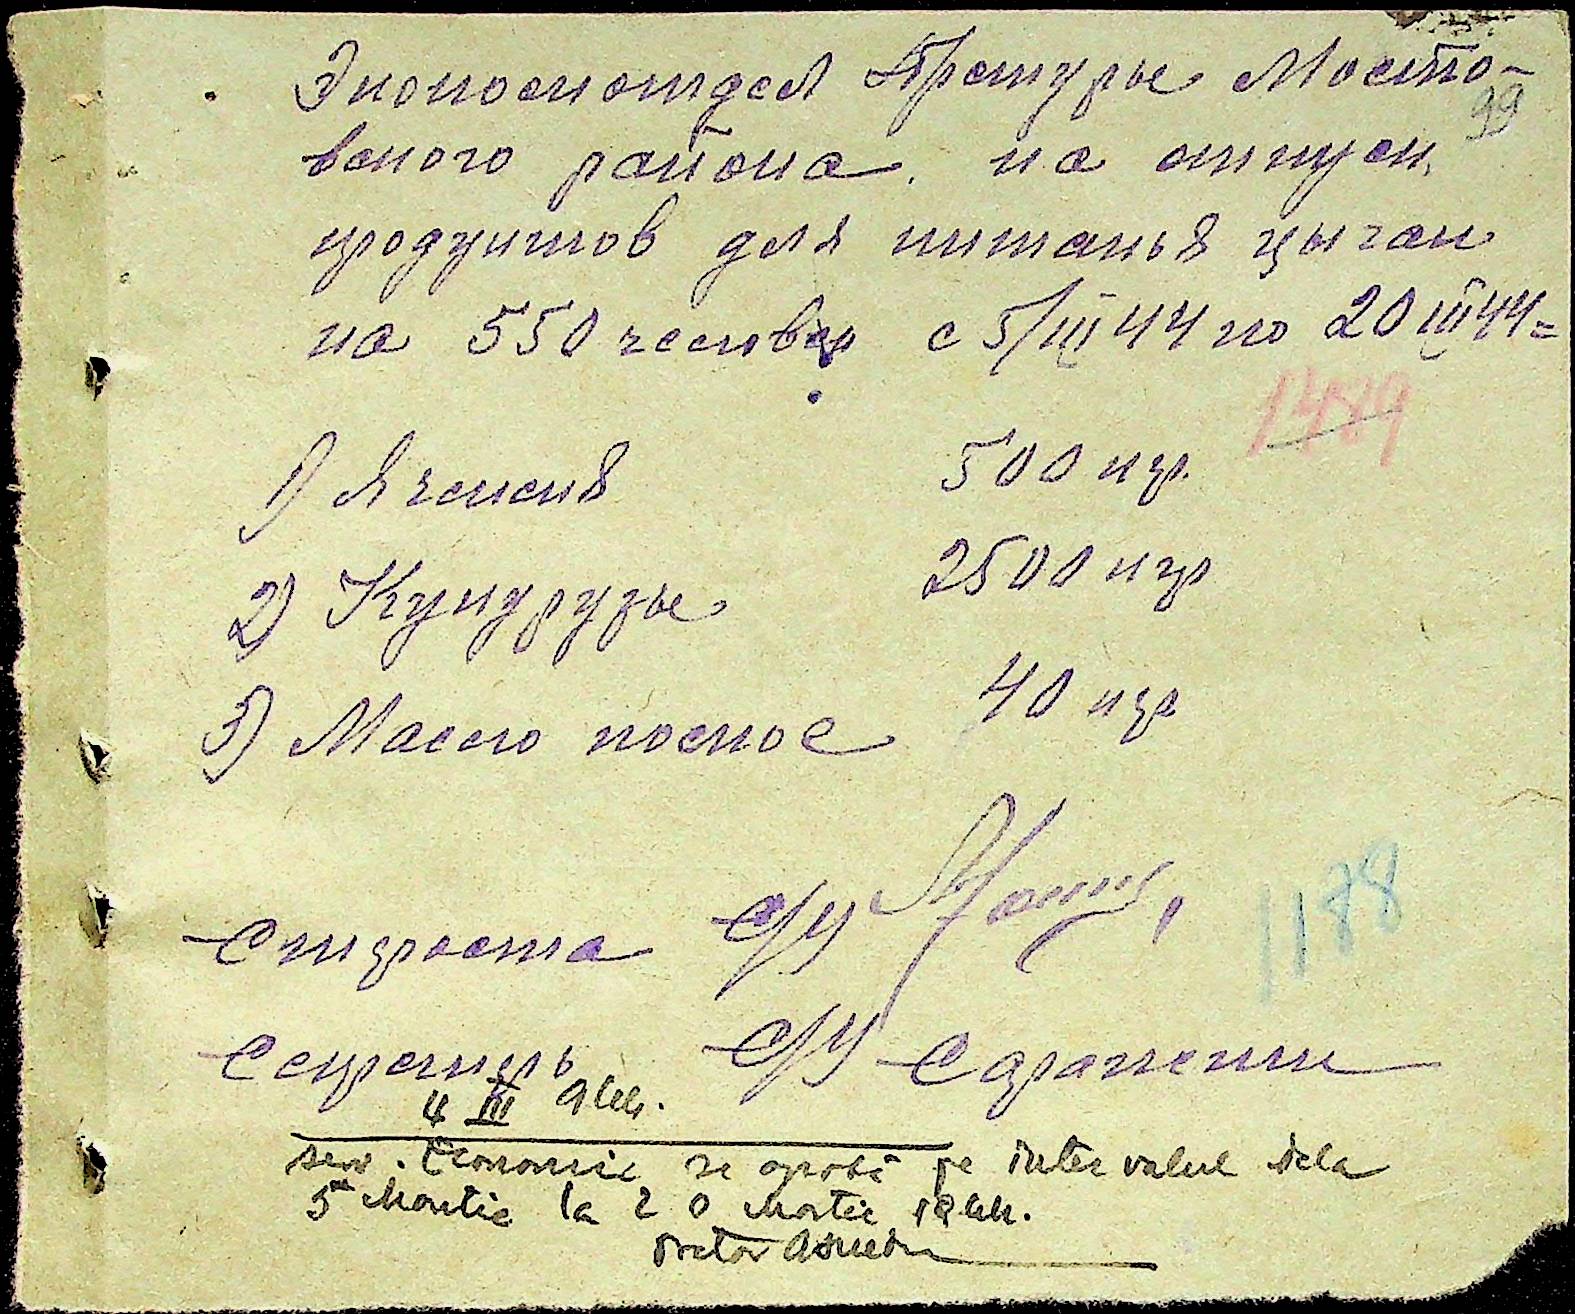 Экономотдел Претуры Мосто-
99
вского района на отпуск
продуктов для питанья цыган
на 550 человек с 5/III 44 по 20 III 44=
1489
1) Ячменя 500 кгр.
2) Кукурузы 2500 кгр
3) Масло посное 40 кгр
Староста С/У
1178
Секретарь С/У
4 III 944.
serv. Economic se aprobă pe intervalul dela
5 Martie la 20 Martie 1944.
Pretor